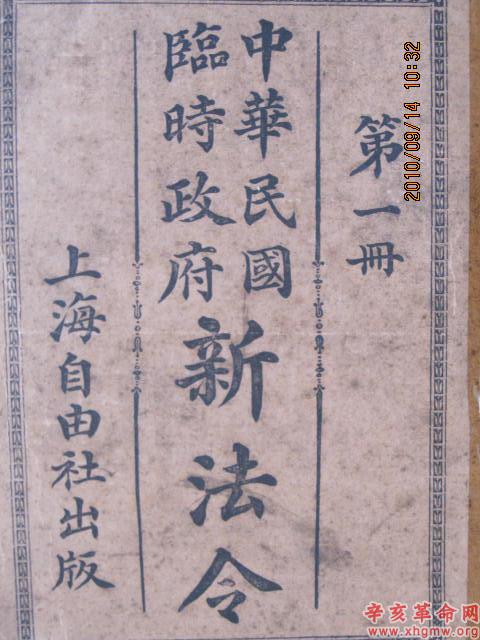 第一冊
中華民國
臨時政府
新法令
上海自由社出版
2010/09/14 10:32
辛亥革命网
www.xhgmw.org